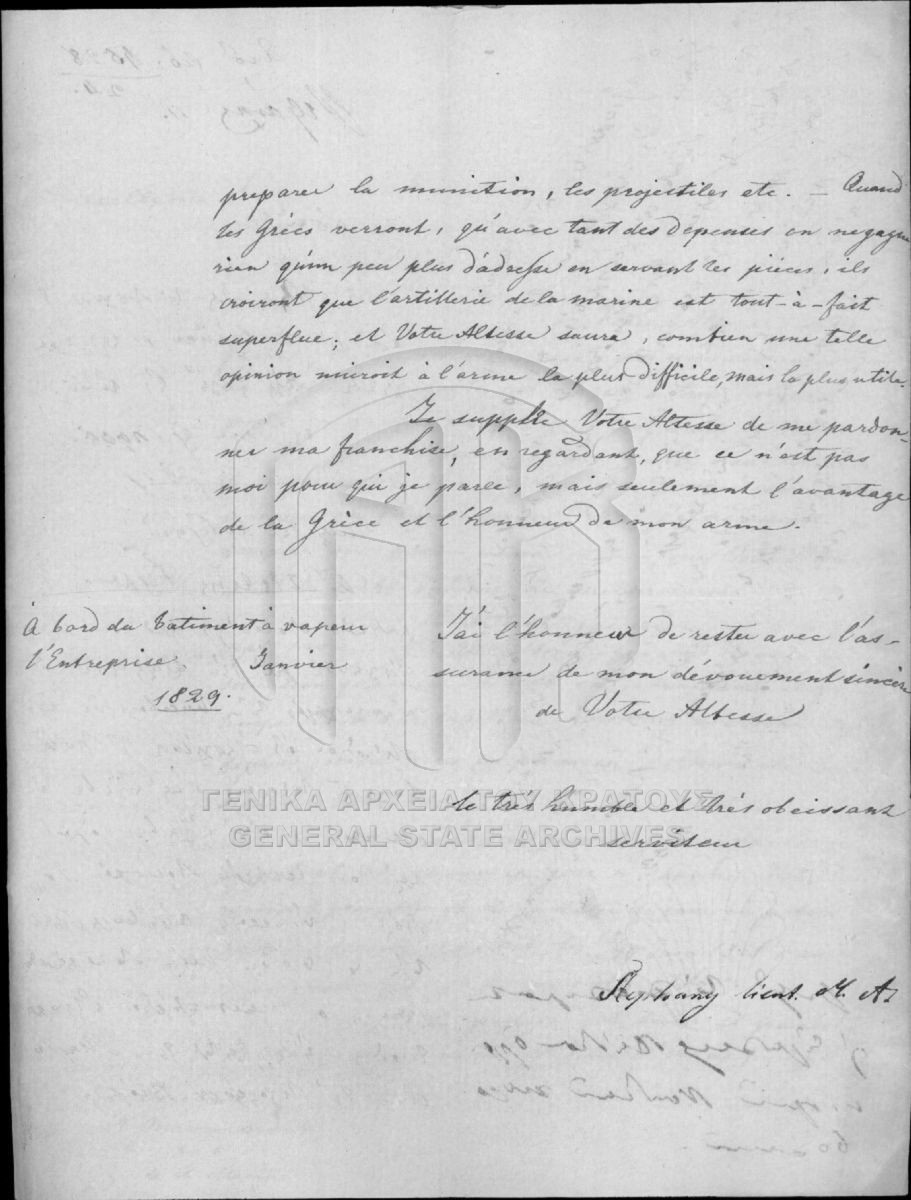 preparer la munition, les projectiles etc. — Quand
les Grécs verront, qu'avec tant des depenses on ne gagne
rien qu'un peu plus d'adresse en servant les piéces, ils
croiront que l'artillerie de la marine est tout-à-fait
superflue; et Votre Altesse saura, combien une telle
opinion nuiroit à l'arme la plus difficile, mais la plus utile.
Je supplie Votre Altesse de me pardon-
ner ma franchise, en regardant, que ce n'est pas
moi pour qui je parle, mais seulement l'avantage
de la Gréce et l'honneur de mon arme.
À bord du batiment à vapeur
l'Entreprise Janvier
1829.
J'ai l'honneur de rester avec l'as-
surance de mon dévouement sincère
de Votre Altesse
le trés humble et trés obeissant
serviteur
Stephany lieut.
ΓΕΝΙΚΑ ΑΡΧΕΙΑ ΤΟΥ ΚΡΑΤΟΥΣ
GENERAL STATE ARCHIVES